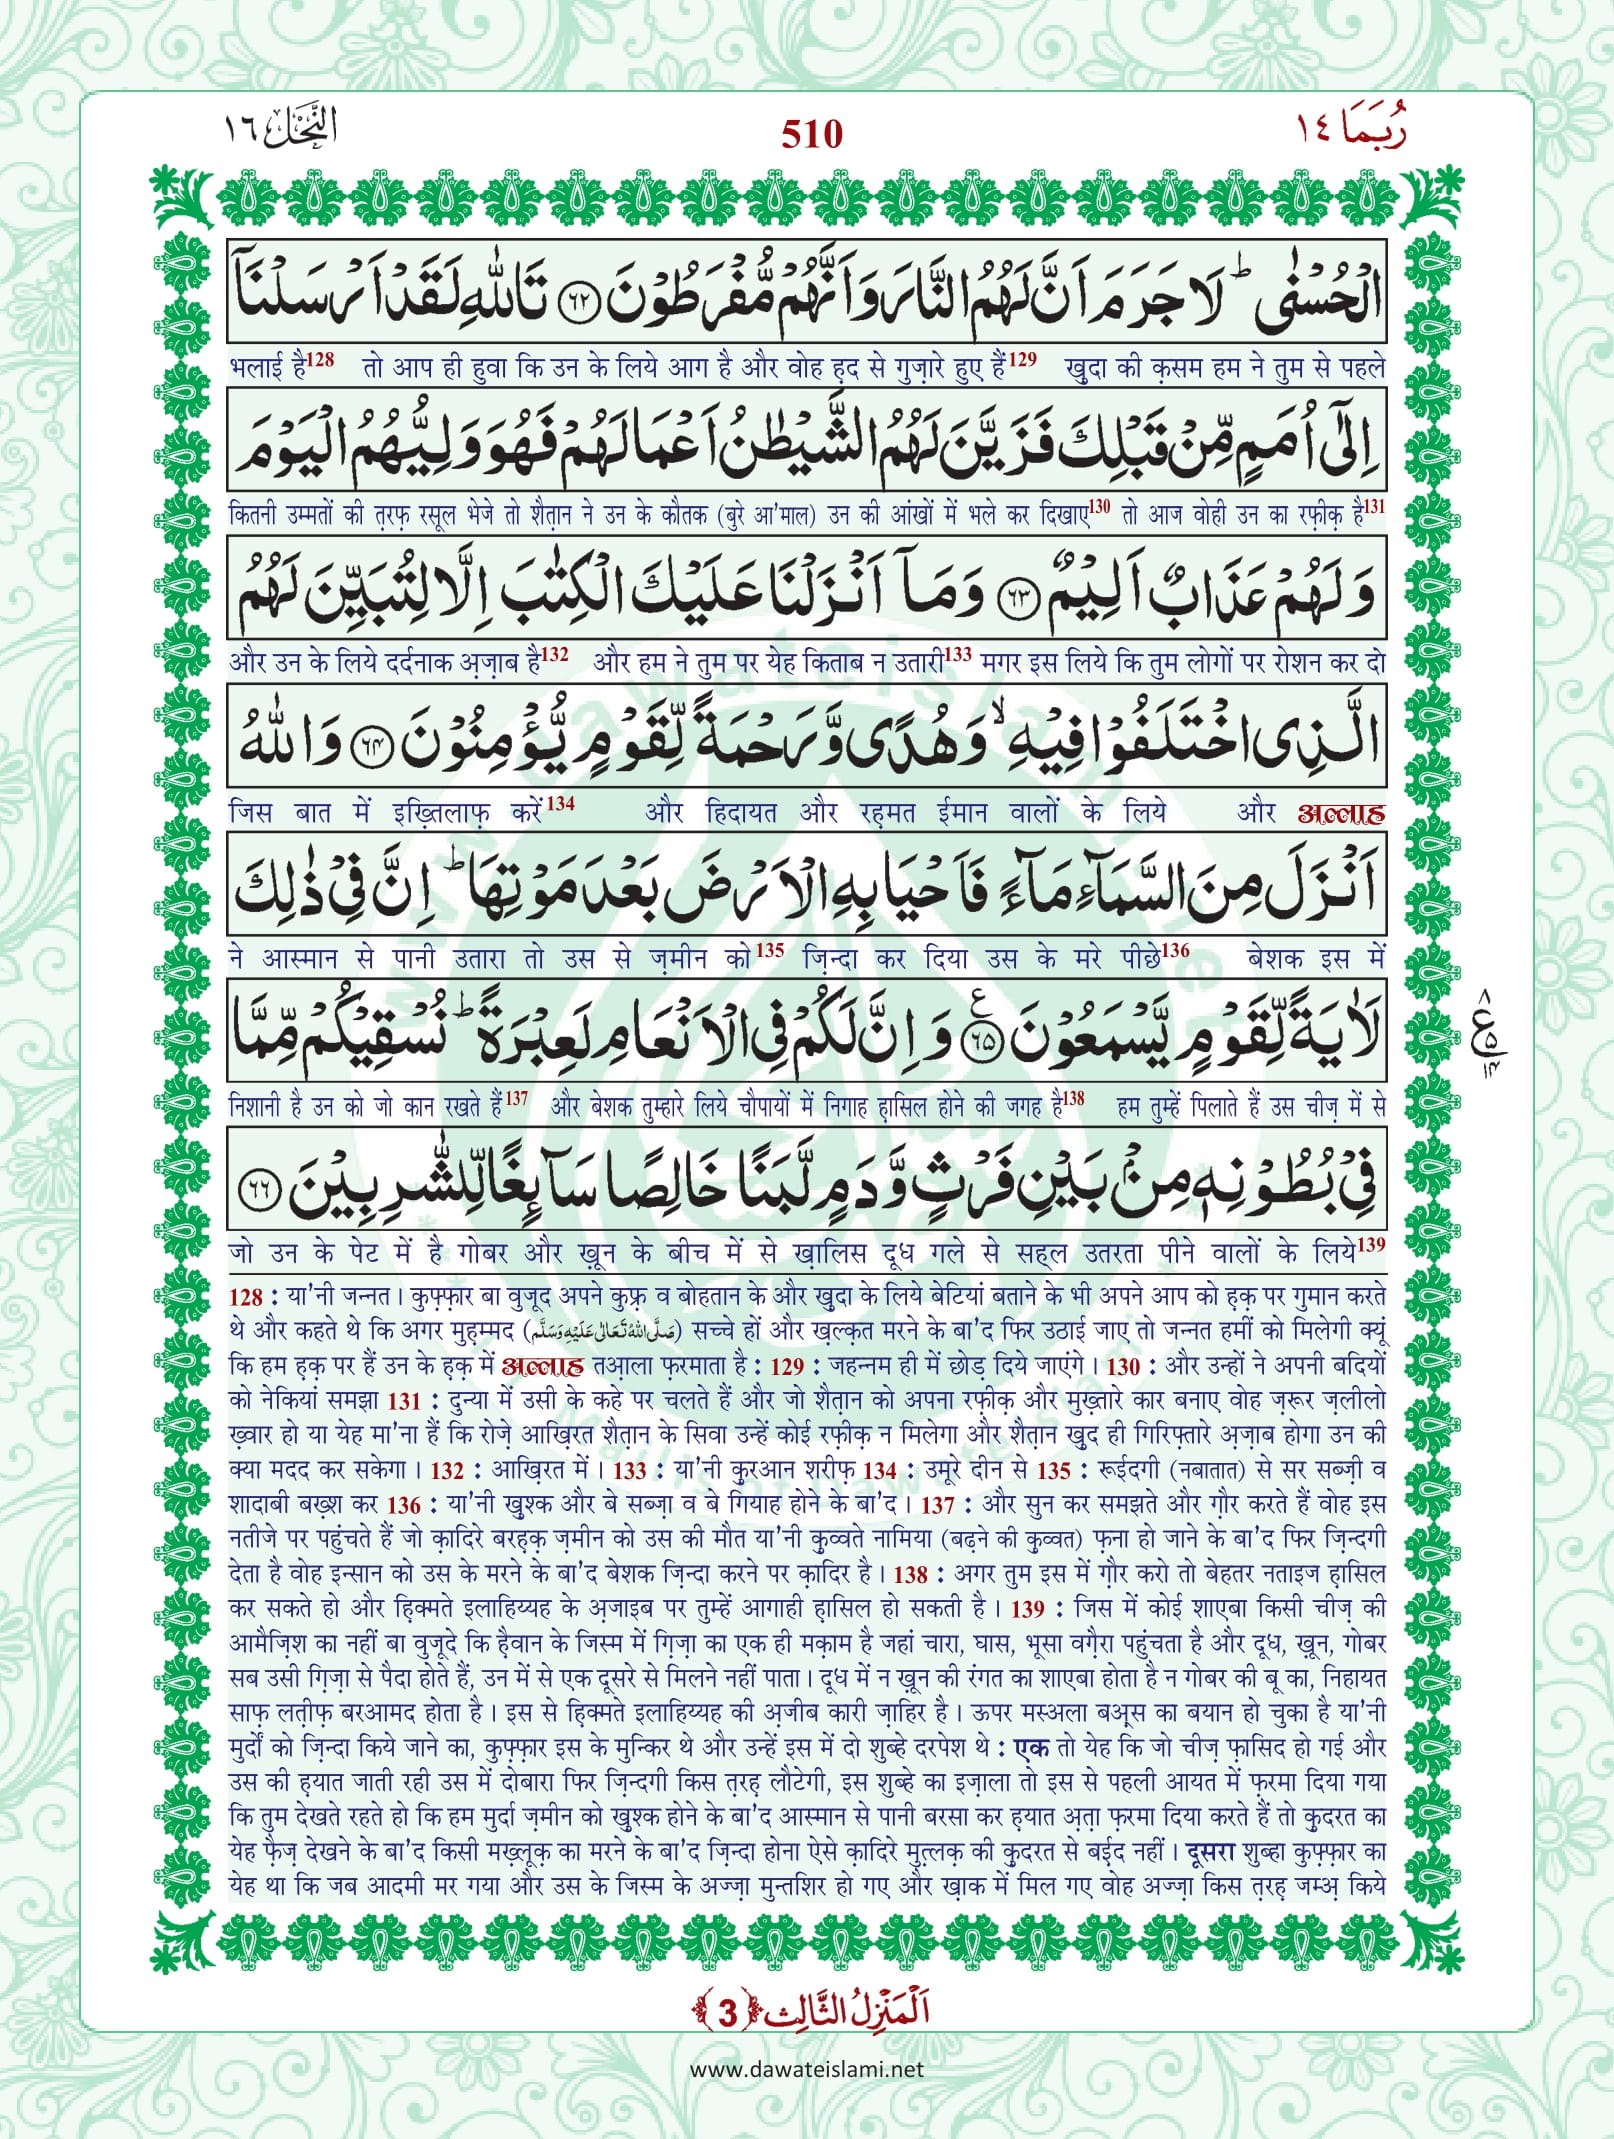 النَّحْل ١٦
510
رُبَمَا ١٤
الْحُسْنٰى ؕ لَا جَرَمَ اَنَّ لَهُمُ النَّارَ وَاَنَّهُمْ مُّفْرَطُوْنَ ﴿۶۲﴾ تَاللّٰهِ لَقَدْ اَرْسَلْنَاۤ
भलाई है128 तो आप ही हुवा कि उन के लिये आग है और वोह ह़द से गुज़ारे हुए हैं129 ख़ुदा की क़सम हम ने तुम से पहले
اِلٰۤى اُمَمٍ مِّنْ قَبْلِكَ فَزَيَّنَ لَهُمُ الشَّيْطٰنُ اَعْمَالَهُمْ فَهُوَ وَلِيُّهُمُ الْيَوْمَ
कितनी उम्मतों की त़रफ़ रसूल भेजे तो शैत़ान ने उन के कौतक (बुरे आ'माल) उन की आंखों में भले कर दिखाए130 तो आज वोही उन का रफ़ीक़ है131
وَلَهُمْ عَذَابٌ اَلِيْمٌ ﴿۶۳﴾ وَمَاۤ اَنْزَلْنَا عَلَيْكَ الْكِتٰبَ اِلَّا لِتُبَيِّنَ لَهُمُ
और उन के लिये दर्दनाक अ़ज़ाब है132 और हम ने तुम पर येह किताब न उतारी133 मगर इस लिये कि तुम लोगों पर रोशन कर दो
الَّذِى اخْتَلَفُوْا فِيْهِ ۙ وَهُدًى وَّرَحْمَةً لِّقَوْمٍ يُّؤْمِنُوْنَ ﴿۶۴﴾ وَاللّٰهُ
जिस बात में इख़्तिलाफ़ करें134 और हिदायत और रह़मत ईमान वालों के लिये और अल्लाह
اَنْزَلَ مِنَ السَّمَآءِ مَآءً فَاَحْيَا بِهِ الْاَرْضَ بَعْدَ مَوْتِهَا ؕ اِنَّ فِىْ ذٰلِكَ
ने आस्मान से पानी उतारा तो उस से ज़मीन को135 ज़िन्दा कर दिया उस के मरे पीछे136 बेशक इस में
لَاٰيَةً لِّقَوْمٍ يَّسْمَعُوْنَ ﴿۶۵﴾ ع وَاِنَّ لَكُمْ فِى الْاَنْعَامِ لَعِبْرَةً ؕ نُسْقِيْكُمْ مِّمَّا
ع
निशानी है उन को जो कान रखते हैं137 और बेशक तुम्हारे लिये चौपायों में निगाह ह़ासिल होने की जगह है138 हम तुम्हें पिलाते हैं उस चीज़ में से
فِىْ بُطُوْنِهٖ مِنْۢ بَيْنِ فَرْثٍ وَّدَمٍ لَّبَنًا خَالِصًا سَآئِغًا لِّلشّٰرِبِيْنَ ﴿۶۶﴾
जो उन के पेट में है गोबर और ख़ून के बीच में से ख़ालिस दूध गले से सह्ल उतरता पीने वालों के लिये139
128 : या'नी जन्नत। कुफ़्फ़ार बा वुजूद अपने कुफ़्र व बोहतान के और ख़ुदा के लिये बेटियां बताने के भी अपने आप को ह़क़ पर गुमान करते
थे और कहते थे कि अगर मुह़म्मद (صَلَّى اللهُ تَعَالٰى عَلَيْهِ وَسَلَّم) सच्चे हों और ख़ल्क़त मरने के बा'द फिर उठाई जाए तो जन्नत हमीं को मिलेगी क्यूं
कि हम ह़क़ पर हैं उन के ह़क़ में अल्लाह तआ़ला फ़रमाता है : 129 : जहन्नम ही में छोड़ दिये जाएंगे। 130 : और उन्हों ने अपनी बदियों
को नेकियां समझा 131 : दुन्या में उसी के कहे पर चलते हैं और जो शैत़ान को अपना रफ़ीक़ और मुख़्तारे कार बनाए वोह ज़रूर ज़लीलो
ख़्वार हो या येह मा'ना हैं कि रोज़े आख़िरत शैत़ान के सिवा उन्हें कोई रफ़ीक़ न मिलेगा और शैत़ान ख़ुद ही गिरिफ़्तारे अ़ज़ाब होगा उन की
क्या मदद कर सकेगा। 132 : आख़िरत में। 133 : या'नी कुरआन शरीफ़ 134 : उमूरे दीन से 135 : रूईदगी (नबातात) से सर सब्ज़ी व
शादाबी बख़्श कर 136 : या'नी ख़ुश्क और बे सब्ज़ा व बे गियाह होने के बा'द। 137 : और सुन कर समझते और ग़ौर करते हैं वोह इस
नतीजे पर पहुंचते हैं जो क़ादिरे बरह़क़ ज़मीन को उस की मौत या'नी कुव्वते नामिया (बढ़ने की कुव्वत) फ़ना हो जाने के बा'द फिर ज़िन्दगी
देता है वोह इन्सान को उस के मरने के बा'द बेशक ज़िन्दा करने पर क़ादिर है। 138 : अगर तुम इस में ग़ौर करो तो बेहतर नताइज ह़ासिल
कर सकते हो और ह़िक्मते इलाहिय्यह के अ़जाइब पर तुम्हें आगाही ह़ासिल हो सकती है। 139 : जिस में कोई शाएबा किसी चीज़ की
आमैज़िश का नहीं बा वुजूदे कि ह़ैवान के जिस्म में ग़िज़ा का एक ही मक़ाम है जहां चारा, घास, भूसा वग़ैरा पहुंचता है और दूध, ख़ून, गोबर
सब उसी ग़िज़ा से पैदा होते हैं, उन में से एक दूसरे से मिलने नहीं पाता। दूध में न ख़ून की रंगत का शाएबा होता है न गोबर की बू का, निहायत
साफ़ लत़ीफ़ बरआमद होता है। इस से ह़िक्मते इलाहिय्यह की अ़जीब कारी ज़ाहिर है। ऊपर मस्अला बअ़्स का बयान हो चुका है या'नी
मुर्दों को ज़िन्दा किये जाने का, कुफ़्फ़ार इस के मुन्किर थे और उन्हें इस में दो शुब्हे दरपेश थे : एक तो येह कि जो चीज़ फ़ासिद हो गई और
उस की ह़यात जाती रही उस में दोबारा फिर ज़िन्दगी किस त़रह़ लौटेगी, इस शुब्हे का इज़ाला तो इस से पहली आयत में फ़रमा दिया गया
कि तुम देखते रहते हो कि हम मुर्दा ज़मीन को ख़ुश्क होने के बा'द आस्मान से पानी बरसा कर ह़यात अ़त़ा फ़रमा दिया करते हैं तो कुदरत का
येह फ़ैज़ देखने के बा'द किसी मख़्लूक़ का मरने के बा'द ज़िन्दा होना ऐसे क़ादिरे मुत़्लक़ की कुदरत से बईद नहीं। दूसरा शुब्हा कुफ़्फ़ार का
येह था कि जब आदमी मर गया और उस के जिस्म के अज्ज़ा मुन्तशिर हो गए और ख़ाक में मिल गए वोह अज्ज़ा किस त़रह़ जम्अ़ किये
اَلْمَنْزِلُ الثَّالِث ﴿3﴾
www.dawateislami.net